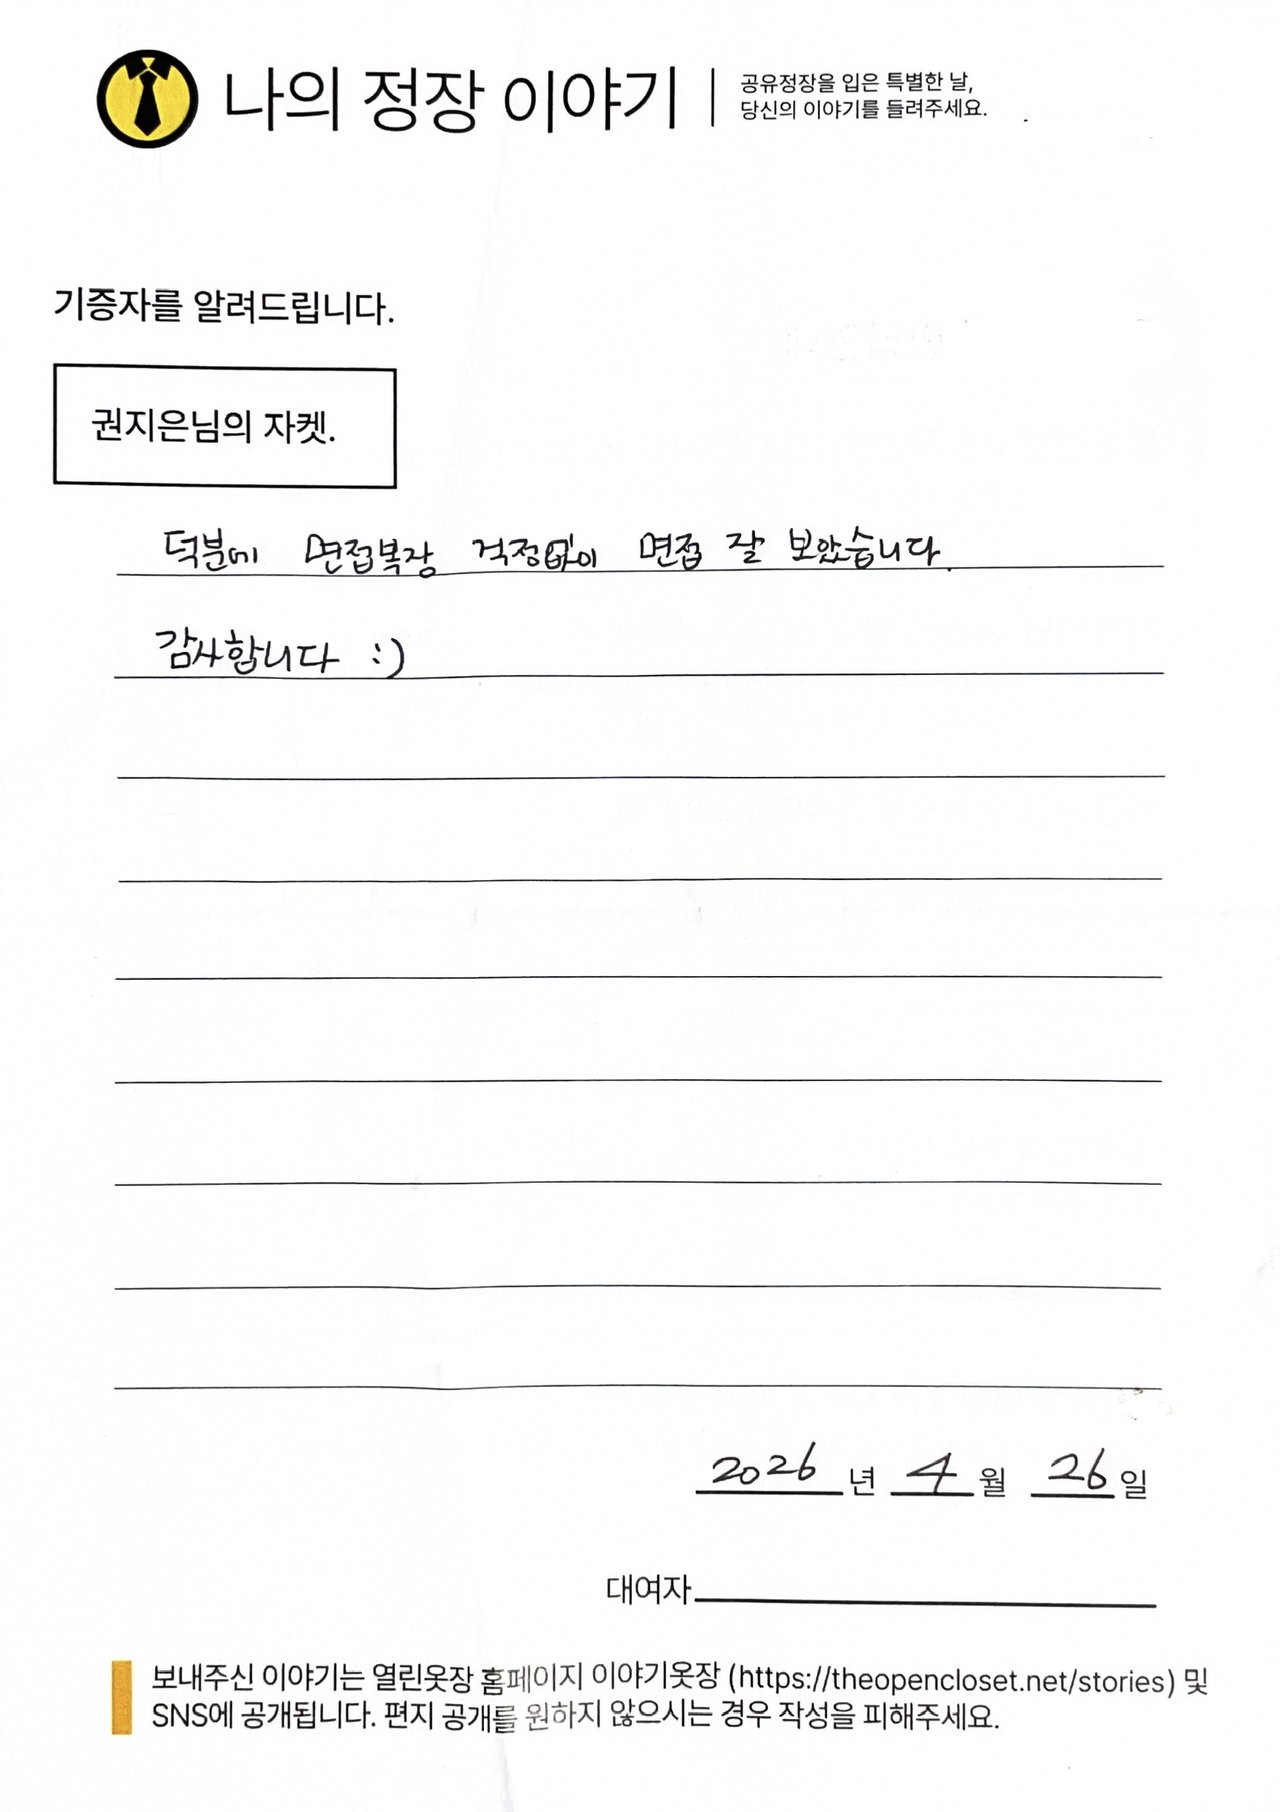 나의 정장 이야기
공유정장을 입은 특별한 날,
당신의 이야기를 들려주세요.
기증자를 알려드립니다.
권지은님의 자켓.
덕분에 면접복장 걱정없이 면접 잘 보았습니다.
감사합니다 :)
2026 년 4 월 26 일
대여자
보내주신 이야기는 열린옷장 홈페이지 이야기옷장 (https://theopencloset.net/stories) 및
SNS에 공개됩니다. 편지 공개를 원하지 않으시는 경우 작성을 피해주세요.